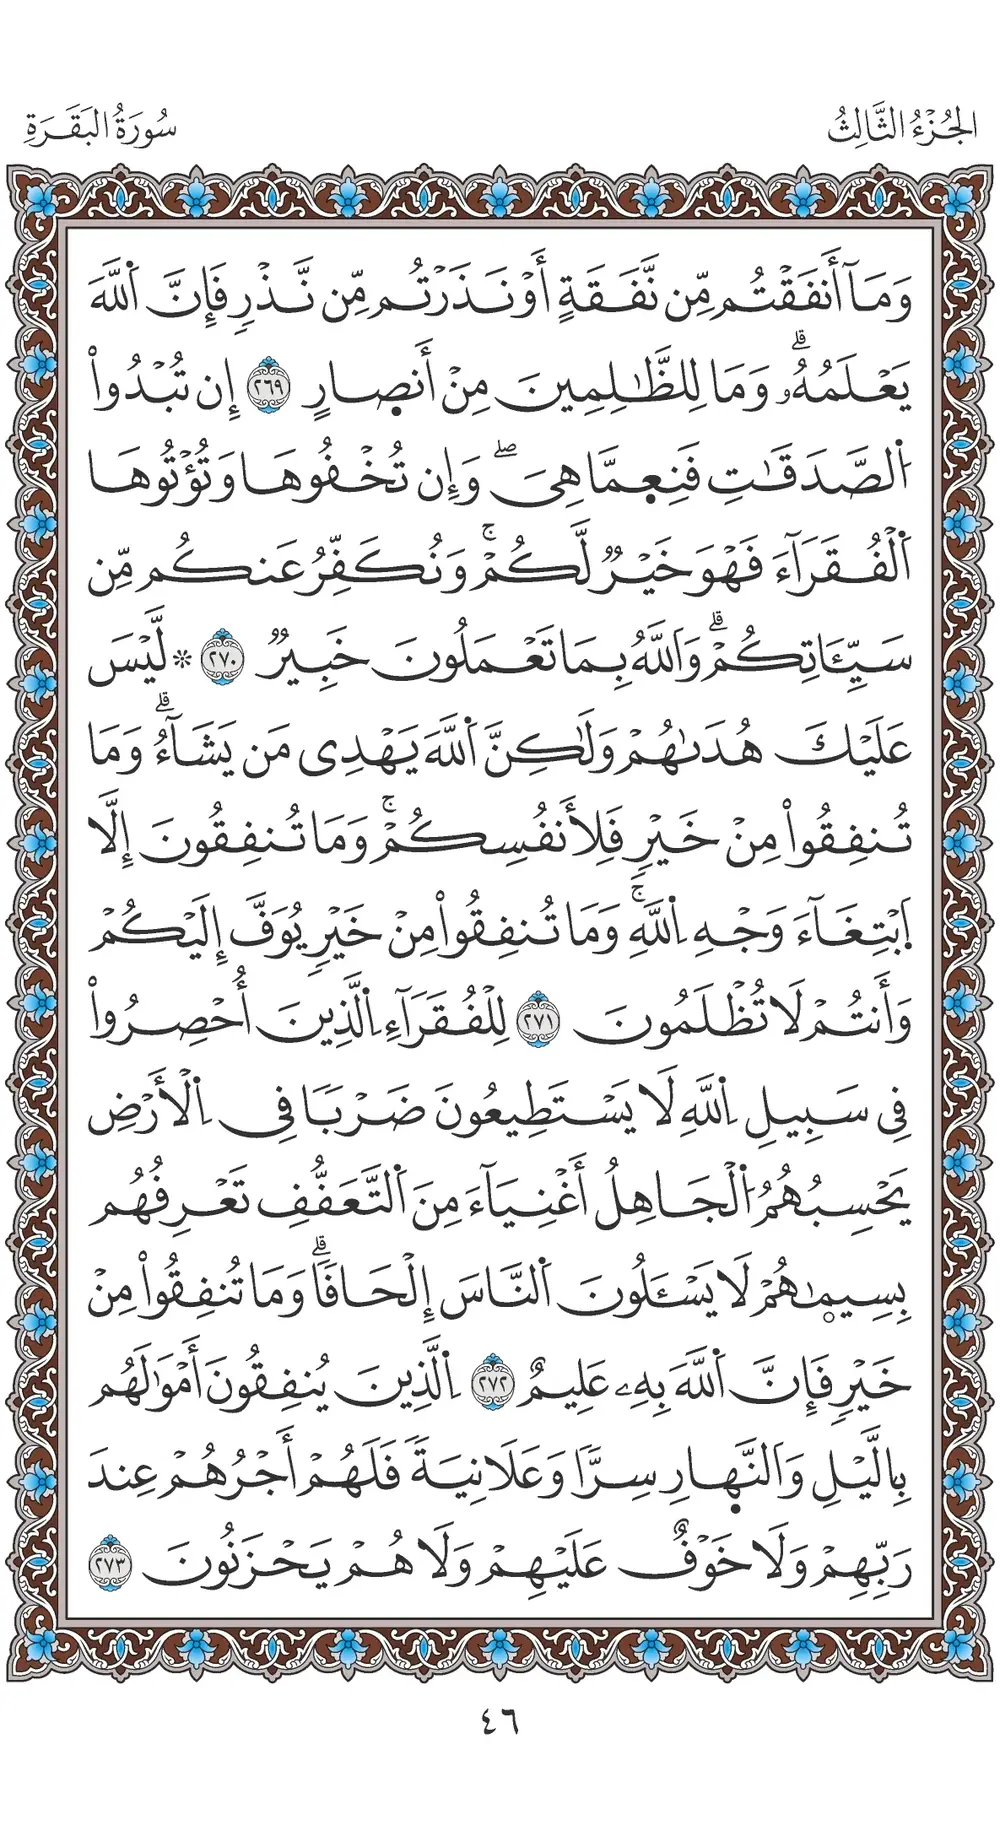 الجُزْءُ الثَّالِثُ
سُورَةُ البَقَرَةِ
وَمَآ أَنفَقْتُم مِّن نَّفَقَةٍ أَوْ نَذَرْتُم مِّن نَّذْرٍ فَإِنَّ اَ۬للَّهَ
يَعْلَمُهُۥۗ وَمَا لِلظَّٰلِمِينَ مِنْ أَنصارٍ ٢٦٩ إِن تُبْدُواْ
اُ۬لصَّدَقَٰتِ فَنِعِمَّا هِىَۖ وَإِن تُخْفُوهَا وَتُؤْتُوهَا
اَ۬لْفُقَرَآءَ فَهْوَ خَيْرٌ لَّكُمْۚ وَنُكَفِّرُ عَنكُم مِّن
سَيِّـَٔاتِكُمْۗ وَاَ۬للَّهُ بِمَا تَعْمَلُونَ خَبِيرٌ ٢٧٠ ۞ لَّيْسَ
عَلَيْكَ هُدَىٰهُمْ وَلَٰكِنَّ اَ۬للَّهَ يَهْدِى مَن يَشَآءُۗ وَمَا
تُنفِقُواْ مِنْ خَيْرٍ فَلِأَنفُسِكُمْۚ وَمَا تُنفِقُونَ إِلَّا
اَ۪بْتِغَآءَ وَجْهِ اِ۬للَّهِۚ وَمَا تُنفِقُواْ مِنْ خَيْرٍ يُوَفَّ إِلَيْكُمْ
وَأَنتُمْ لَا تُظْلَمُونَ ٢٧١ لِلْفُقَرَآءِ اِ۬لَّذِينَ أُحْصِرُواْ
فِى سَبِيلِ اِ۬للَّهِ لَا يَسْتَطِيعُونَ ضَرْبًا فِى اِ۬لْأَرْضِ
يَحْسِبُهُمُ اُ۬لْجَاهِلُ أَغْنِيَآءَ مِنَ اَ۬لتَّعَفُّفِ تَعْرِفُهُم
بِسِيمٜىٰهُمْ لَا يَسْـَٔلُونَ اَ۬لنَّاسَ إِلْحَافًاۗ وَمَا تُنفِقُواْ مِنْ
خَيْرٍ فَإِنَّ اَ۬للَّهَ بِهِۦ عَلِيمٌ ٢٧٢ اِ۬لَّذِينَ يُنفِقُونَ أَمْوَٰلَهُم
بِالَّيْلِ وَاَ۬لنَّه۪ارِ سِرًّا وَعَلَانِيَةً فَلَهُمْ أَجْرُهُمْ عِندَ
رَبِّهِمْ وَلَا خَوْفٌ عَلَيْهِمْ وَلَا هُمْ يَحْزَنُونَ ٢٧٣
٤٦